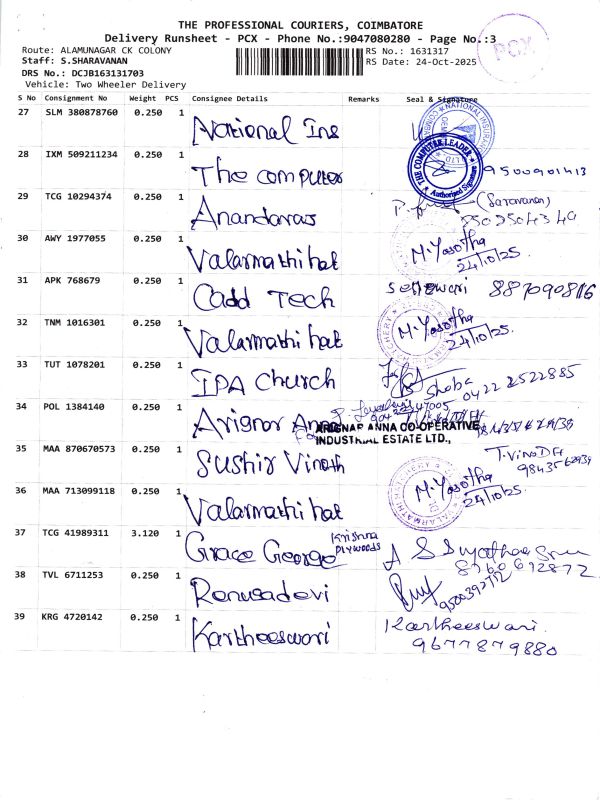 THE PROFESSIONAL COURIERS, COIMBATORE
Delivery Runsheet - PCX - Phone No.:9047080280 - Page No.:3
PCX
Route: ALAMUNAGAR CK COLONY
RS No.: 1631317
Staff: S.SHARAVANAN
RS Date: 24-Oct-2025
DRS No.: DCJB163131703
Vehicle: Two Wheeler Delivery
S No Consignment No Weight PCS Consignee Details Remarks Seal & Signature
27 SLM 380878760 0.250 1 National Ins
28 IXM 509211234 0.250 1 The computer THE COMPUTER LEADER Authorised Signature 9500901413
29 TCG 10294374 0.250 1 Anandavas (Saravanan)
30 AWY 1977055 0.250 1 Valarmathi hat M. Yasotha
24/10/25.
31 APK 768679 0.250 1 Cadd Tech
32 TNM 1016301 0.250 1 Valarmathi hat M. Yasotha
24/10/25.
33 TUT 1078201 0.250 1 IPA Church Shoba 0422 2522885
34 POL 1384140 0.250 1 Arignar Anna
ARIGNAR ANNA CO-OPERATIVE
INDUSTRIAL ESTATE LTD.,
35 MAA 870670573 0.250 1 Sushir Vinoth
36 MAA 713099118 0.250 1 Valarmathi hat M. Yasotha
24/10/25.
37 TCG 41989311 3.120 1 Grace George Krishna
Plywoods
38 TVL 6711253 0.250 1 Renusadevi
39 KRG 4720142 0.250 1 Kartheeswari Kartheeswari.
9677879880